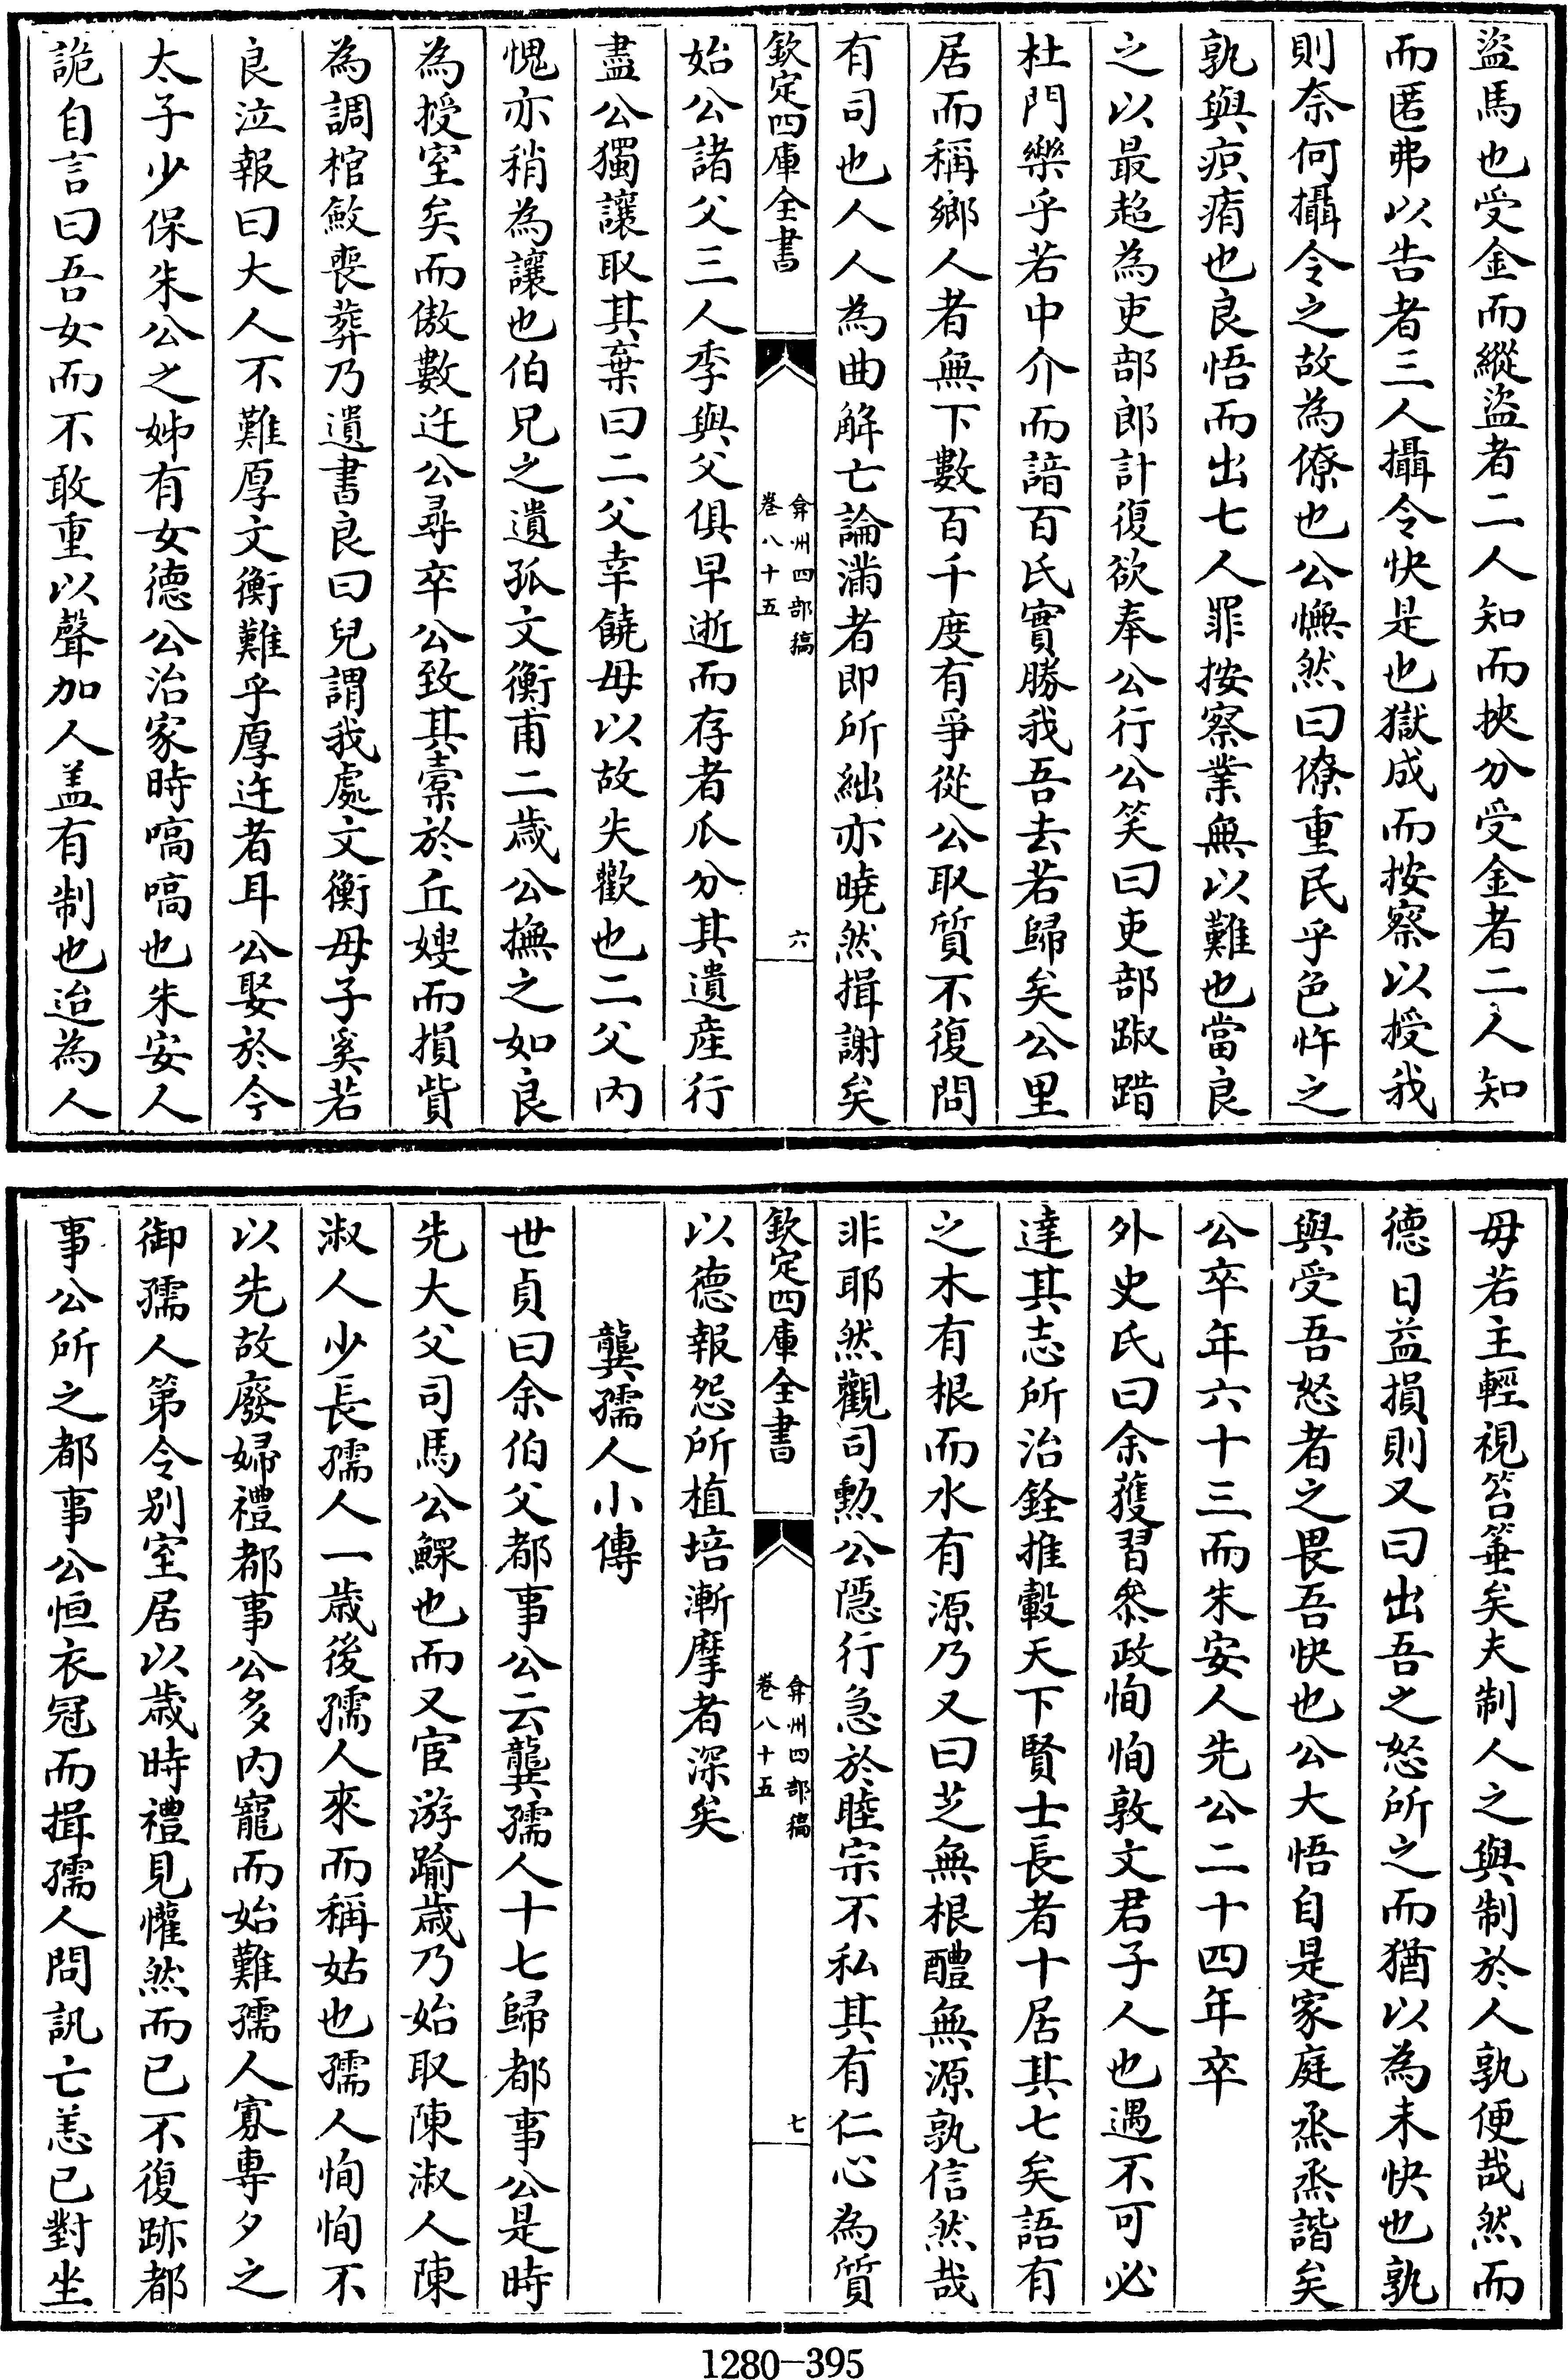 盜馬也受金而縱盜者二人知而挾分受金者二人知
而匿弗以告者三人攝令快是也獄成而按察以授我
則奈何攝令之故為僚也公憮然曰僚重民乎色忤之
孰與痕痏也良悟而出七人罪按察業無以難也當良
之以最超為吏部郎計復欲奉公行公笑曰吏部踧踖
杜門樂乎若中介而諳百氏實勝我吾去若歸矣公里
居而稱鄉人者無下數百千度有爭從公取質不復問
有司也人人為曲解亡論滿者即所絀亦曉然揖謝矣
欽定四庫全書
弇州四部稿
卷八十五
六
始公諸父三人季與父俱早逝而存者瓜分其遺産行
盡公獨讓取其棄曰二父幸饒毋以故失歡也二父內
愧亦稍為讓也伯兄之遺孤文衡甫二歲公撫之如良
為授室矣而傲數迕公尋卒公致其櫜於丘嫂而損貲
為調棺斂喪葬乃遺書良曰兒謂我處文衡母子奚若
良泣報曰大人不難厚文衡難乎厚迕者耳公娶於今
太子少保朱公之姊有女德公治家時嗃嗃也朱安人
詭自言曰吾女而不敢重以聲加人盖有制也迨為人
母若主輕視笞箠矣夫制人之與制於人孰便哉然而
德日益損則又曰出吾之怒所之而猶以為未快也孰
與受吾怒者之畏吾快也公大悟自是家庭烝烝諧矣
公卒年六十三而朱安人先公二十四年卒
外史氏曰余獲習叅政恂恂敦文君子人也遇不可必
達其志所治銓推轂天下賢士長者十居其七矣語有
之木有根而水有源乃又曰芝無根醴無源孰信然哉
非耶然觀司勲公隱行急於睦宗不私其有仁心為質
欽定四庫全書
弇州四部稿
卷八十五
七
以德報怨所植培漸摩者深矣
龔孺人小傳
世貞曰余伯父都事公云龔孺人十七歸都事公是時
先大父司馬公鰥也而又宦游踰歲乃始取陳淑人陳
淑人少長孺人一歲後孺人來而稱姑也孺人恂恂不
以先故廢婦禮都事公多內寵而始難孺人寡專夕之
御孺人第令別室居以歲時禮見懽然而已不復跡都
事公所之都事公恒衣冠而揖孺人問訊亡恙已對坐
1280-395